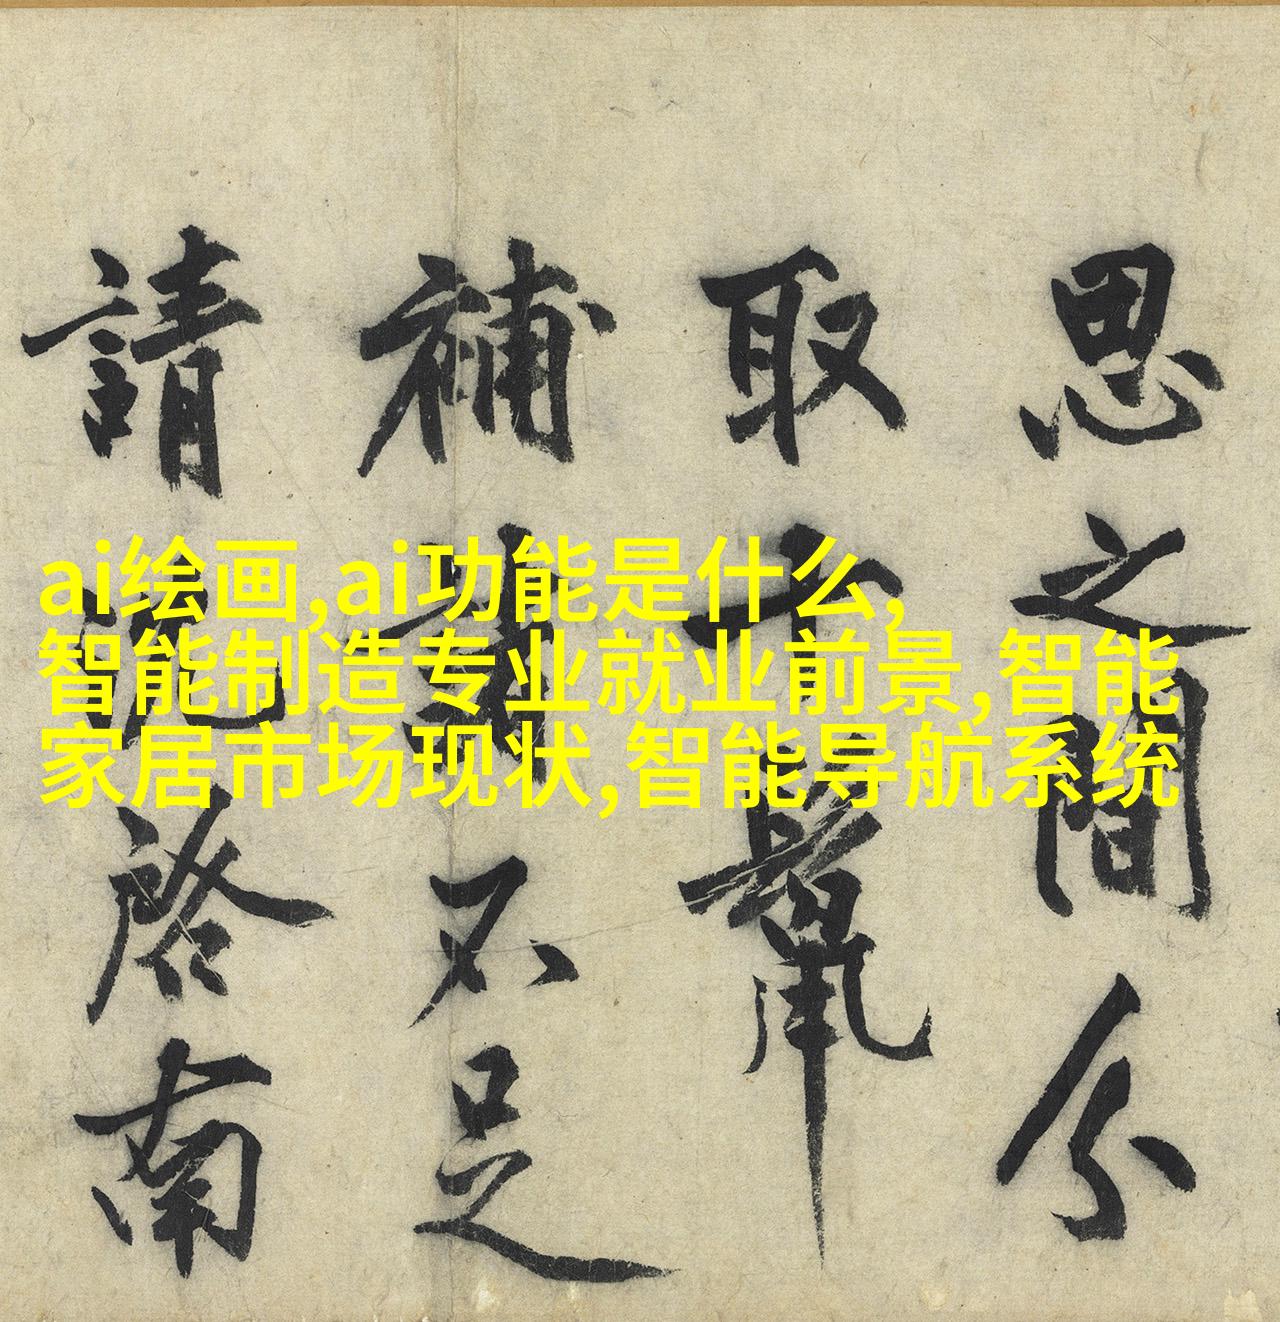 ai绘画,ai功能是什么,
智能制造专业就业前景,智能
家居市场现状,智能导航系统
思之間分
取
補不足
請南